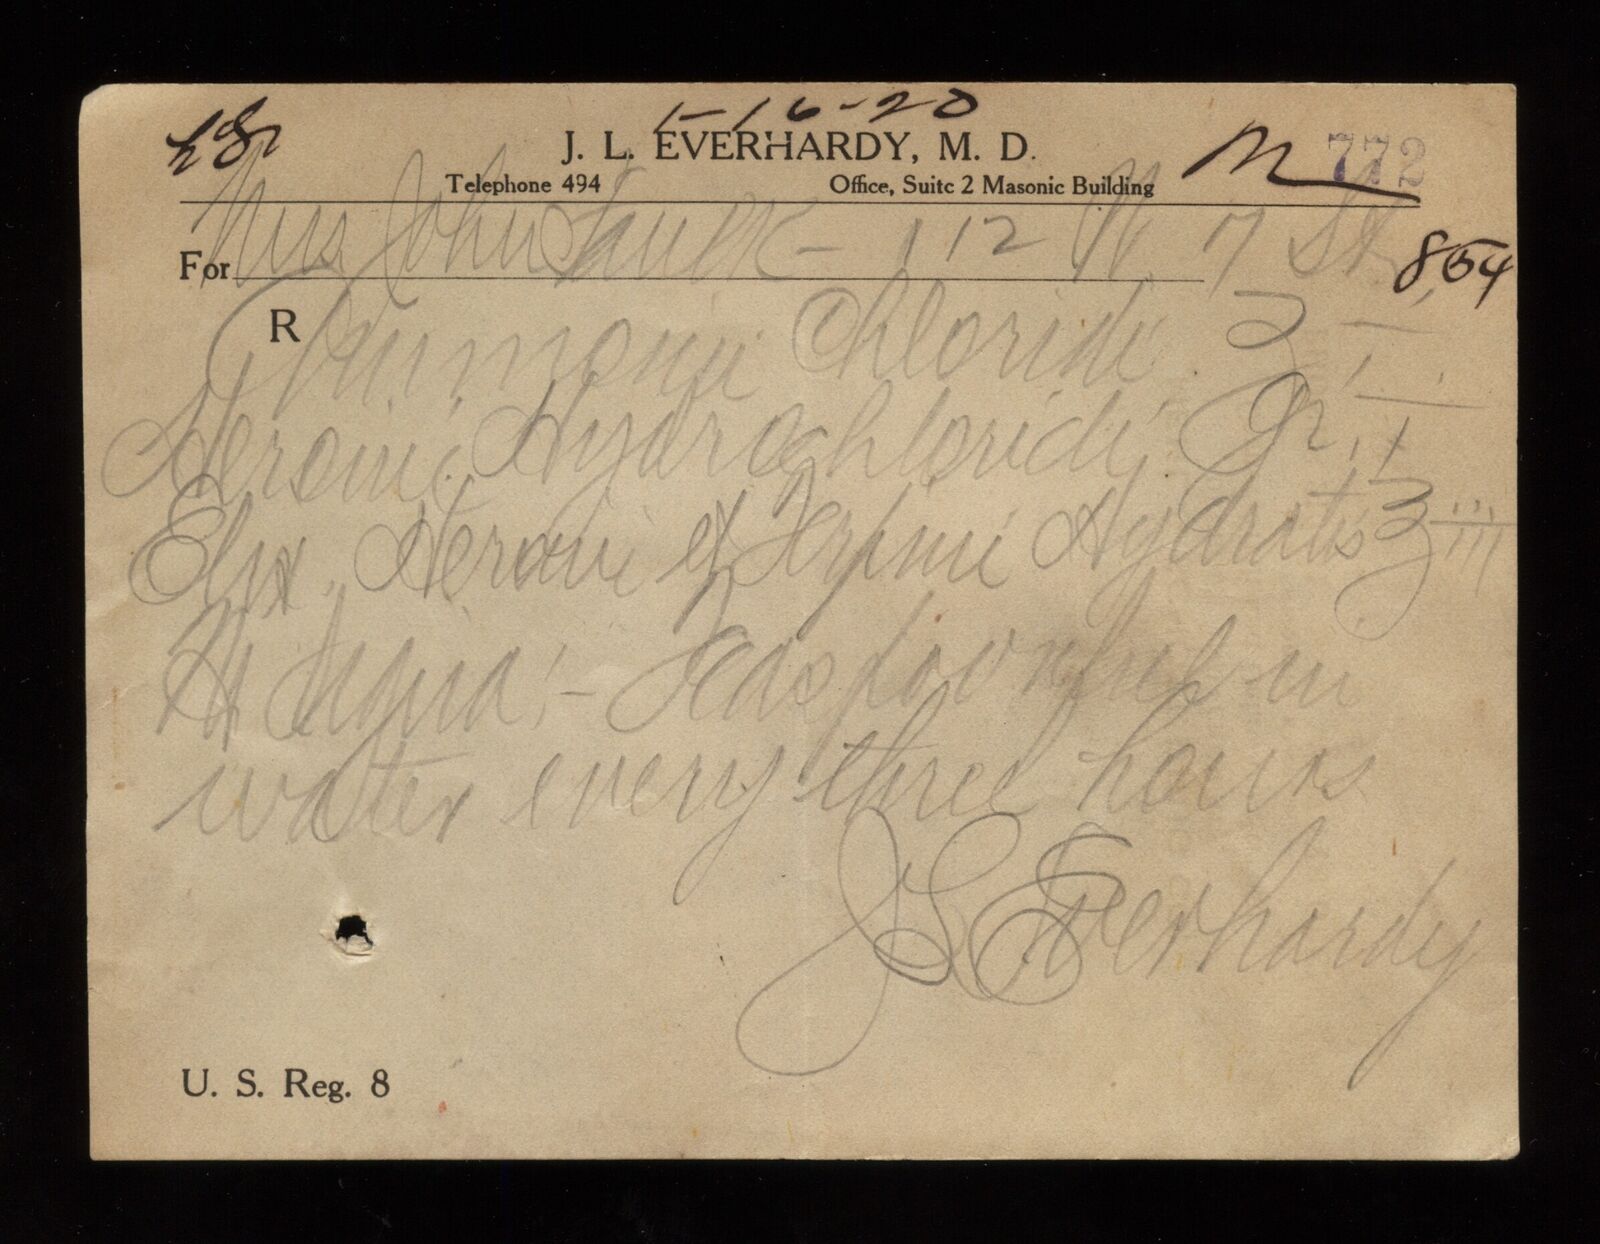 1-16-20
J. L. EVERHARDY, M. D.
772
Telephone 494 Office, Suite 2 Masonic Building
For Mrs John - 112 N 17 St
854
R Ammonii Chloridi ʒ I
Heroini Hydrochloridi Gr. I
Elix. Heroini et Terpini Hydratis ℥ iii
M Signa:- Teaspoonful in
water every three hours
J L Everhardy
U. S. Reg. 8